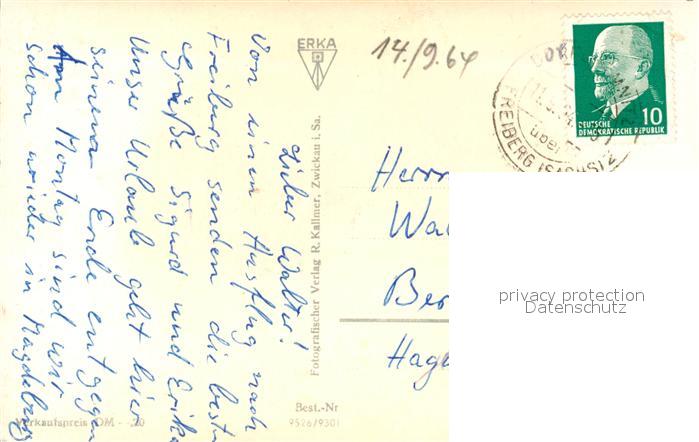 Lieber Walter!
Von einem Ausflug nach
Freiburg senden die besten
Grüße Sigurd und Erika
Unser Urlaub geht hier
seinem Ende entgegen
Am Montag sind wir
schon wieder in Magdeburg
Verkaufspreis DM -.20
ERKA
Fotografischer Verlag R. Kallmer, Zwickau i. Sa.
Best.-Nr
9526/9301
14./9.64
FREIBERG (SACHS) 2
über
10
DEUTSCHE
DEMOKRATISCHE REPUBLIK
Herrn
Wal
Ber
Hage
privacy protection
Datenschutz